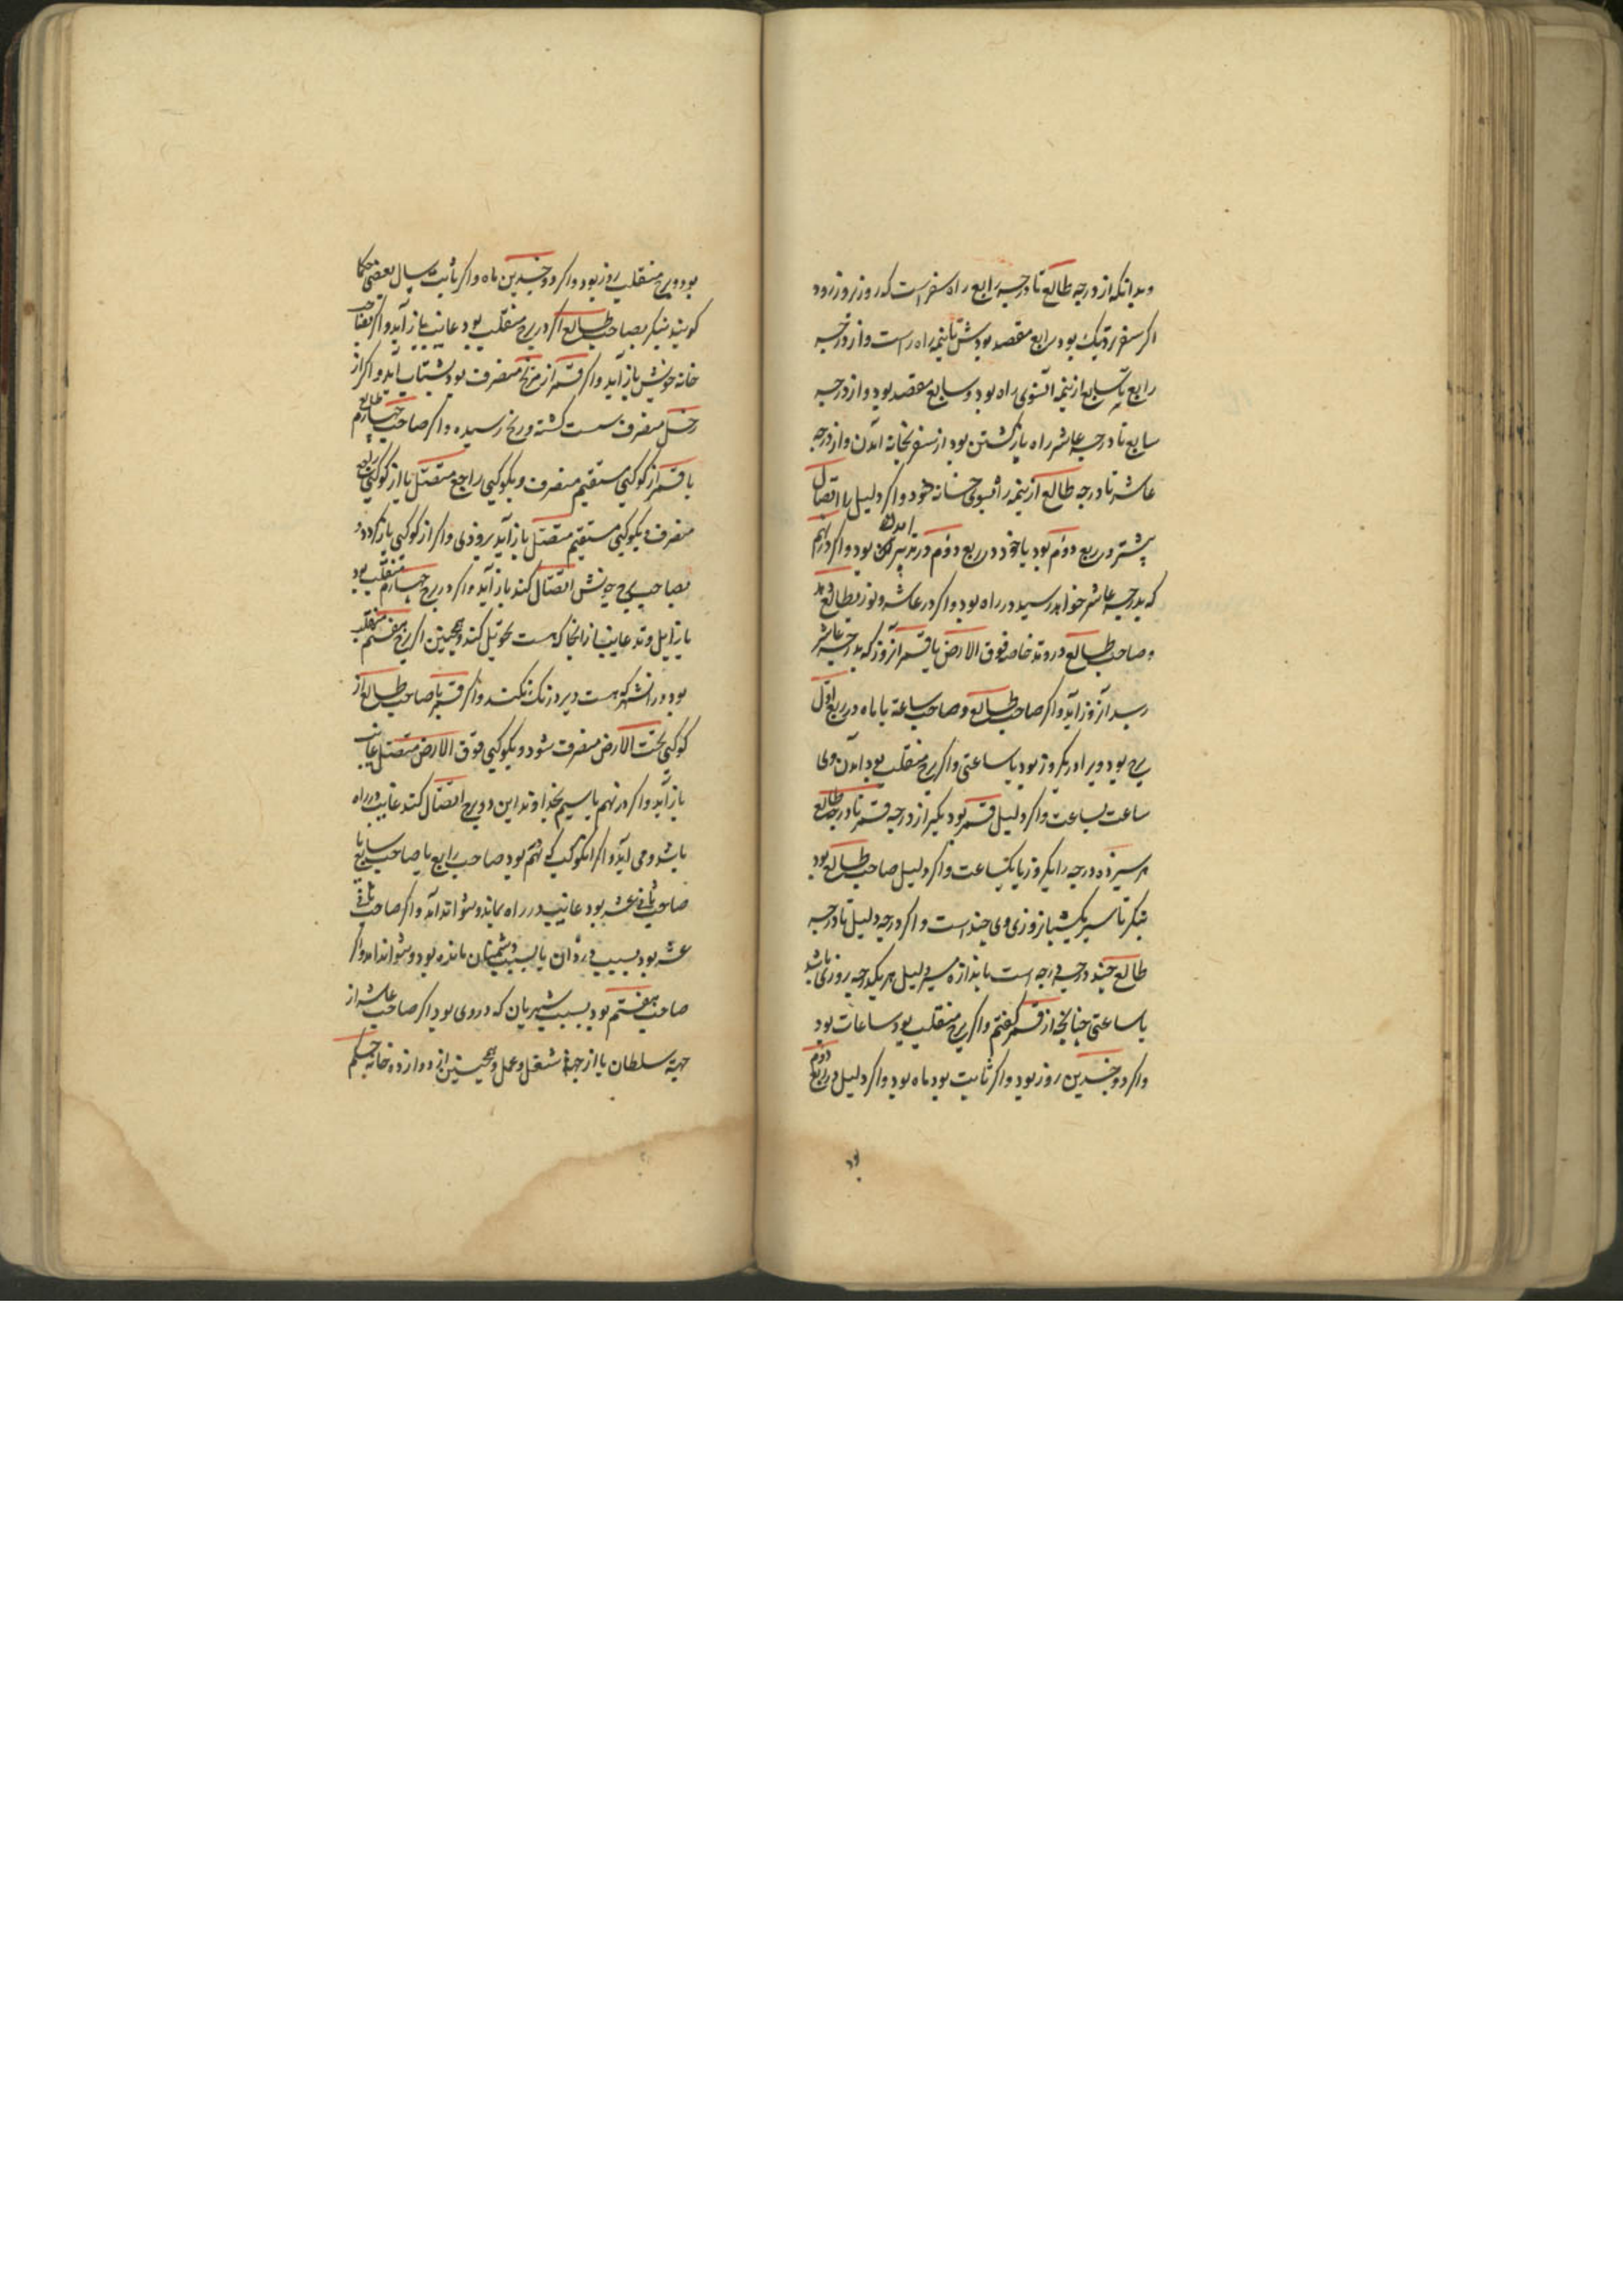 وبدانکه از درجه طالع تا درجه رابع راه سفر است که روز بروز رود
اکر سفر نزدیک بود رابع مقصد بود شش تا نیمه راه راست و از درجه
رابع تا سابع از نیمه آنسوی راه بود و سابع مقصد بود و از درجه
سابع تا درجه عاشر راه بازکشتن بود از سفر بخانه آمدن و از درجه
عاشر تا درجه طالع از نیمه راه بسوی خانه خود و اکر دلیل با اتصال
پیشتر در ربع دوم بود یا خود در ربع دوم در تدبیر آمدن بود و اکر در نهم
که بدرجه عاشر خواهد رسید در راه بود و اکر در عاشر و نور بطالع دهد
و صاحب طالع در وتد خاصه فوق الارض یا قمر آنروز که بدرجه عاشر
رسد آنروز آید و اکر صاحب طالع و صاحب ساعة یا ماه در ربع اول
برج بود ویرا در یکروز بود یا ساعتی و اکر برج منقلب بود آمدن وی
ساعت بساعت و اکر دلیل قمر بود بکیر از درجه قمر تا درجه طالع
هر سیزده درجه را یکروز یا یکساعت و اکر دلیل صاحب طالع بود
بنکر تا سیر یکشبانروزی وی چند است و اکر درجه دلیل تا درجه
طالع چند درجه است باندازه سیر دلیل هر یکدرجه روزی باشد
یا ساعتی چنانکه از قمر کفتم و اکر برج منقلب بود ساعات بود
و اکر دو جسدین روز بود و اکر ثابت بود ماه بود و اکر دلیل در ربع دوم
بود
بود و برج منقلب روز بود و اکر دو جسدین ماه و اکر ثابت سال بعضی حکما
کویند بنکر بصاحب طالع اکر در برج منقلب بود غایب باز آید و اکر بصاحب
خانه خویش باز آید و اکر قمر از مریخ منصرف بود بشتاب آید و اکر از
زحل منصرف سست کشته و رنج رسیده و اکر صاحب چهارم طالع
یا قمر از کوکبی مستقیم منصرف و بکوکبی راجع متصل یا از کوکبی راجع
منصرف و بکوکبی مستقیم متصل باز آید بزودی و اکر از کوکبی باز کردد و
بصاحب برج خویش اتصال کند باز آید و اکر در برج چهارم منقلب بود
یا زایل وتد غایب از انجا که هست تحویل کند و همچنین اکر برج هفتم منقلب
بود در انشهر که هست دیر درنک نکند و اکر قمر یا صاحب طالع از
کوکبی تحت الارض منصرف شود و بکوکبی فوق الارض متصل غایب
باز آید و اکر در نهم یا سیم بخداوند این دو برج اتصال کند غایب در راه
باشد و می آید و اکر انکوکب که نهم بود صاحب رابع یا صاحب سابع یا
صاحب ثانی عشر بود غایب در راه بماند و نتواند آمد و اکر صاحب ثانی
عشر بود بسبب دزدان یا بسبب دشمنان مانده بود و نتواند امد و اکر
صاحب هفتم بود بسبب شریان که در وی بود و اکر صاحب عاشر از
جهة سلطان یا از جهة شغل و عمل و همچنین از دوازده خانه حکم